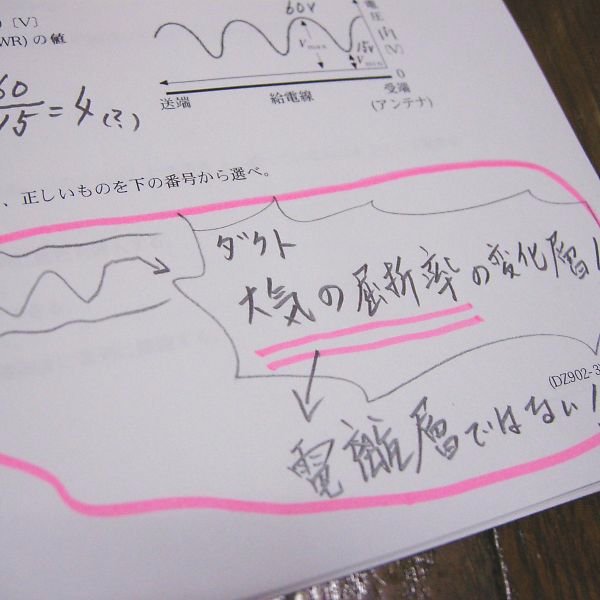 〔V〕
WR) の値
60/15 = 4 (?)
60V
15V
Vmax
Vmin
電圧
|V|
(V)
0
送端
給電線
受端
(アンテナ)
、正しいものを下の番号から選べ。
ダクト
大気の屈折率の変化層
(DZ902-3
電離層ではない!